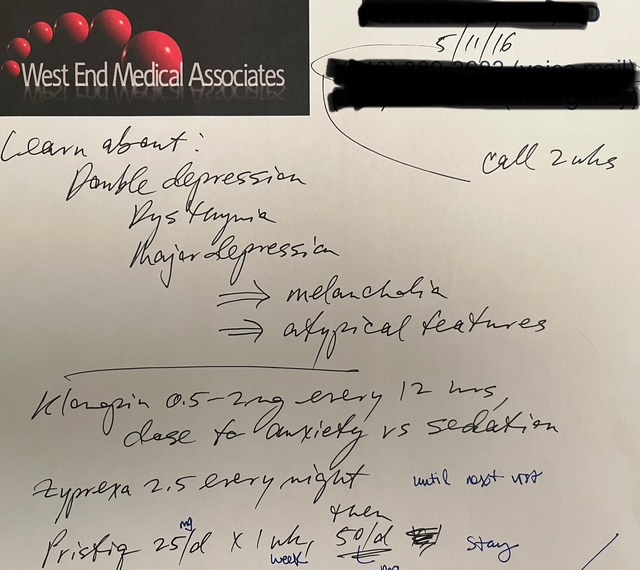 5/11/16
West End Medical Associates
call 2 wks
Learn about:
Double depression
Dysthymia
Major depression
⇒ melancholia
⇒ atypical features
Klonopin 0.5-2mg every 12 hrs,
dose to anxiety vs sedation
Zyprexa 2.5 every night until next visit
then
Pristiq 25/d x 1 wk, 50/d stay
mg
week
mg